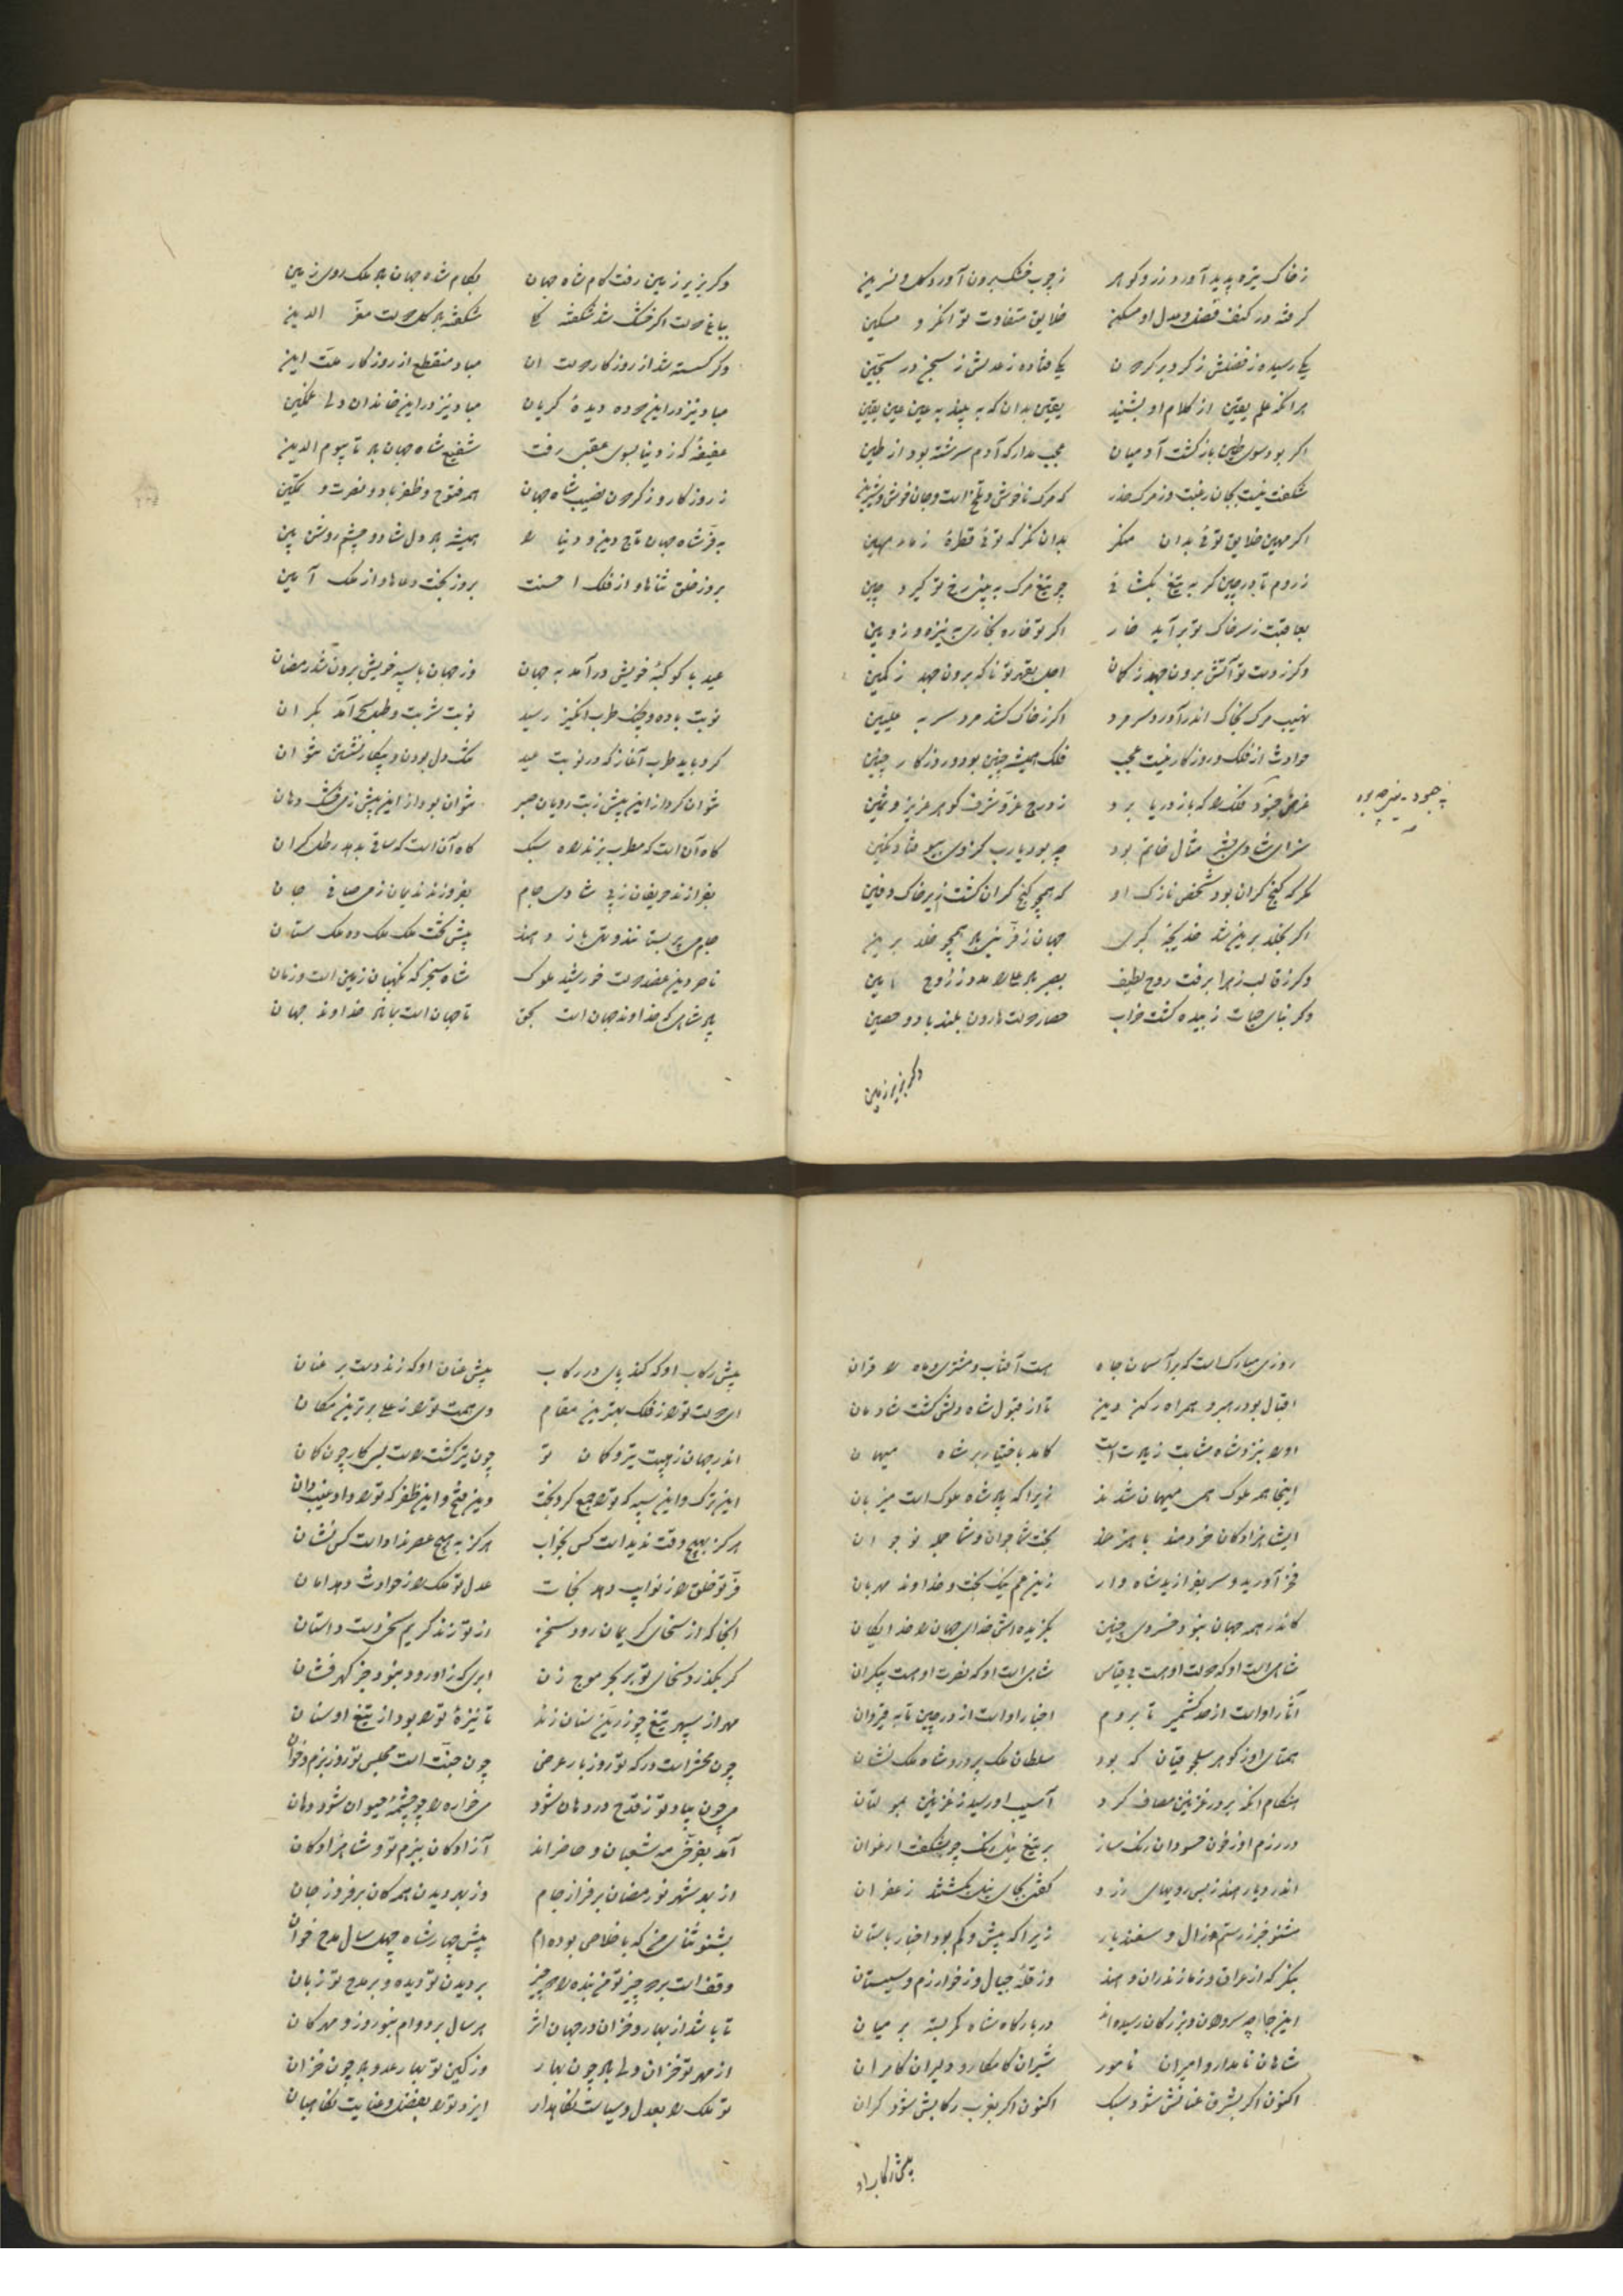 ز خاک تیره پدید آورد زر و گوهر ز چوب خشک برون آورد گل و نسرین
گرفته در کنف فضل و عدل او مسکن خلایق متفاوت توانگر و مسکین
یکی رسیده ز فضلش ز گرد بر گردون یکی فتاده ز عدلش ز سجن در سجین
هر آنکه علم یقین از کلام او بشنید یقین بدان که به بیند به عین عین یقین
اگر بود سوی طین بازگشت آدمیان عجب مدار که آدم سرشته بود از طین
شگفت نیست بجان رغبت و ز مرگ حذر که مرگ ناخوش و تلخ است و جان خوش و شیرین
اگر مهین خلایق توئی بدان منگر بدان نگر که توئی قطرهٔ ز ماء مهین
ز روم تا بدر چین گر به تیغ بگشائی چو تیغ مرگ به بینی رخ تو گیرد چین
بعاقبت ز سر خاک تو برآید خار اگر تو خاره بخاری به نیزه و زوبین
وگر ز دست تو آتش برون جهد ز کمان اجل بقهر تو ناگه برون جهد ز کمین
نهیب مرگ بخاک اندر آورد سر مرد اگر ز خاک کشد مرد سر به علیین
حوادث از فلک و روزگار نیست عجب فلک همیشه چنین بود و روزگار چنین
غرض چه بود فلک را که باز دریا برد ز درج عز و شرف گوهر عزیز و ثمین
سرای شادی بیشر مثال خاتم بود چه بود یارب کز وی بیوفتاد نگین
مگر که گنج گران بود شخص نازک او که همچو گنج گران گشت زیر خاک دفین
اگر بخلد برین شد خدیجهٔ کبری جهان ز فر نبی باد همچو خلد برین
وگر ز قالب زهرا برفت روح لطیف بصبر باد علی را مدد ز روح امین
وگر بنای حیات زبیده گشت خراب حصار دولت هارون بلند باد و حصین
وگر بزیر زمین
وگر بزیر زمین رفت کام شاه جهان بکام شاه جهان باد ملک روی زمین
بباغ دولت اگر خشک شد شکفته گلی شکفته باد گل دولت معز الدین
وگر گسسته شد از روزگار دولت آن مباد منقطع از روزگار مدت این
مباد نیز در این دوده دیدهٔ گریان مباد نیز در این خاندان دلی غمگین
عفیفهٔ که ز دنیا بسوی عقبی رفت شفیع شاه جهان باد تا بیوم الدین
ز روزگار و ز گردون نصیب شاه جهان همه فتوح و ظفر باد و نصرت و تمکین
به فر شاه جهان تاج دین و دنیا را همیشه باد دل شاد و چشم روشن بین
بروز خلق ثناها و از فلک احسنت بروز بخت دعاها و از ملک آمین
عید با کوکبهٔ خویش درآمد به جهان وز جهان با سپه خویش برون شد رمضان
نوبت باده و چنگ طرب انگیز رسید نوبت شربت و طبل سحر آمد بکران
کرد باید طرب آغاز که در نوبت عید تنگ دل بودن و بیکار نشستن نتوان
نتوان کرد از این پیش ز بت رویان صبر نتوان بود از این پیش ز می خشک دهان
گاه آن است که مطرب بزند راه سبک گاه آن است که ساقی بدهد رطل گران
بفرازند حریفان ز پی شادی جام بفروزند ندیمان ز می صافی جان
ناصر دین عضد دولت خورشید ملوک شاه سنجر که نگهبان زمین است و زمان
پادشاهی که خداوند جهان است بحق تا جهان است بماناد خداوند جهان
روزی مبارک است که بر آسمان جاه هست آفتاب و مشتری و ماه را قران
اقبال بود رهبر و همراه رکن دین تا از قبول شاه دلش گشت شادمان
او را بنزد شاه مثابت زیادت است کامد باختیار بر شاه میهمان
اینجا همه ملوک همی میهمان شدند زیرا که پادشاه ملوک است میزبان
ای شاهزادگان خردمند با هنر بخت شما جوان و شما جمله نوجوان
فخر آورید و سر بفرازید شاه وار زین عم نیک بخت و خداوند مهربان
کاندر همه جهان نبود خسروی چنین بگزیده‌اش خدای جهان را خدایگان
شاهی است او که دولت او هست بی قیاس شاهی است او که نصرت او هست بیکران
آثار او است از حد کشمیر تا بروم اخبار او است از در چین تا به قیروان
همتای او ز گوهر سلجوقیان که بود سلطان ملک پرور و شاه ملک نشان
هنگام آنکه بر در غزنین مصاف کرد آسیب او رسید ز غزنین به مولتان
در رزم او ز خون حسودان رنگ ساز بر تیغ نیل رنگ چو بشکفت ارغوان
اندر دیار هند ز بس رویهای زرد گفتی بجای نیل بکشتند زعفران
مشنو خبر ز رستم و زال و سفندیار زیرا که بیش و کم بود اخبار باستان
بنگر که از عراق و ز مازندران و هند وز قلهٔ جبال و ز خوارزم و سیستان
این جا چه سروران و بزرگان رسیده‌اند در بارگاه شاه کمر بسته بر میان
شاهان نامدار و امیران نامور شیران کامکار و دلیران کامران
اکنون اگر بشرق عنانش شود سبک اکنون اگر بغرب رکابش شود گران
پیش رکاب او
پیش رکاب او که کند پای در رکاب پیش عنان او که زند دست بر عنان
ای دولت تو را ز فلک بهترین مقام وی همت تو را ز علی برترین مکان
اندر جهان ز هیبت تیر و کمان تو چون تیر گشت راست بسی کار چون کمان
این ترک و این سپه که تو را جمع کرد بخت وین فتح و این ظفر که تو را داد غیب دان
هرگز بهیچ وقت ندیده است کس بخواب هرگز به هیچ عصر نداده است کس نشان
فر تو خلق را ز نوایب دهد نجات عدل تو ملک را ز حوادث دهد امان
آنجا که از سخای کریمان رود سخن از تو زند کریم سخی دست داستان
گر بگذرد سخای تو بر بحر موج زن ابری که زو رود نبود جز گهر فشان
مهر از سپهر تیغ چو زرین سنان زند تا نیزهٔ تو را بود از تیغ او سنان
چون محشر است درگه تو روز بار عرض چون جنت است مجلس تو روز بزم و خوان
می چون بیاد تو ز قدح در دهان شود می خواره را چو چشمهٔ حیوان شود دهان
آزادگان ببزم تو و شاهزادگان
از بهر شهر نو رمضان برفراز جام وز بهر دیدن همگان برفروز جان
بشنو ثنای من که باخلاص بوده‌ام پیش چهار شاه چهل سال مدح خوان
وقف است بر دو چیز تو من بنده را دو چیز بر دیدن تو دیده و بر مدح تو زبان
تا باشد از بهار و خزان در جهان اثر هر سال بر دوام بنوروز و مهرگان
از مهر تو خزان ولی باد چون بهار وز کین تو بهار عدو باد چون خزان
تو ملک را بعدل و سیاست نگاهدار ایزد تو را بفضل و عنایت نگاهبان